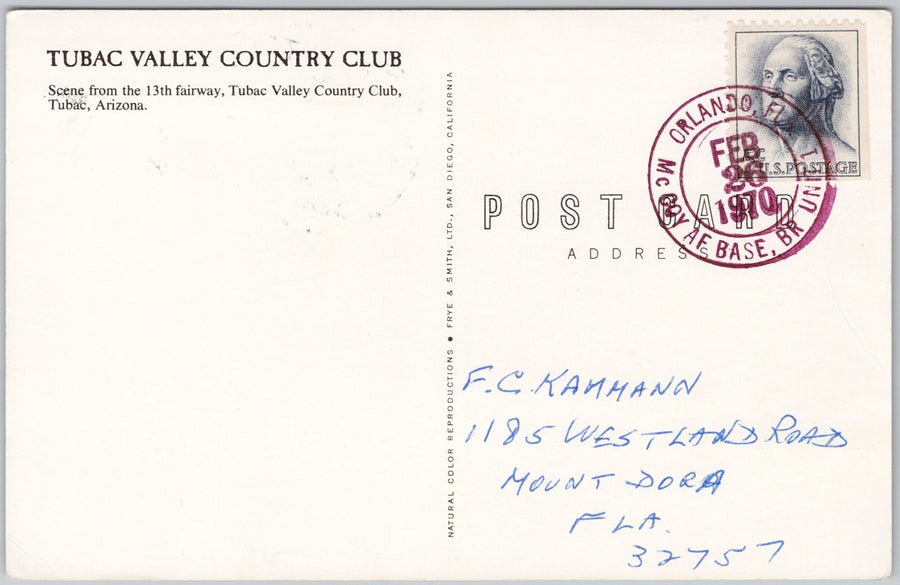 TUBAC VALLEY COUNTRY CLUB
Scene from the 13th fairway, Tubac Valley Country Club,
Tubac, Arizona.
NATURAL COLOR REPRODUCTIONS • FRYE & SMITH, LTD., SAN DIEGO, CALIFORNIA
U.S.POSTAGE
ORLANDO, FL
FEB
26
1970
McCOY AF BASE, BR UNIT 1
POST CARD
ADDRESS
F.C. KAMMANN
1185 WESTLAND ROAD
MOUNT DORA
FLA.
32757